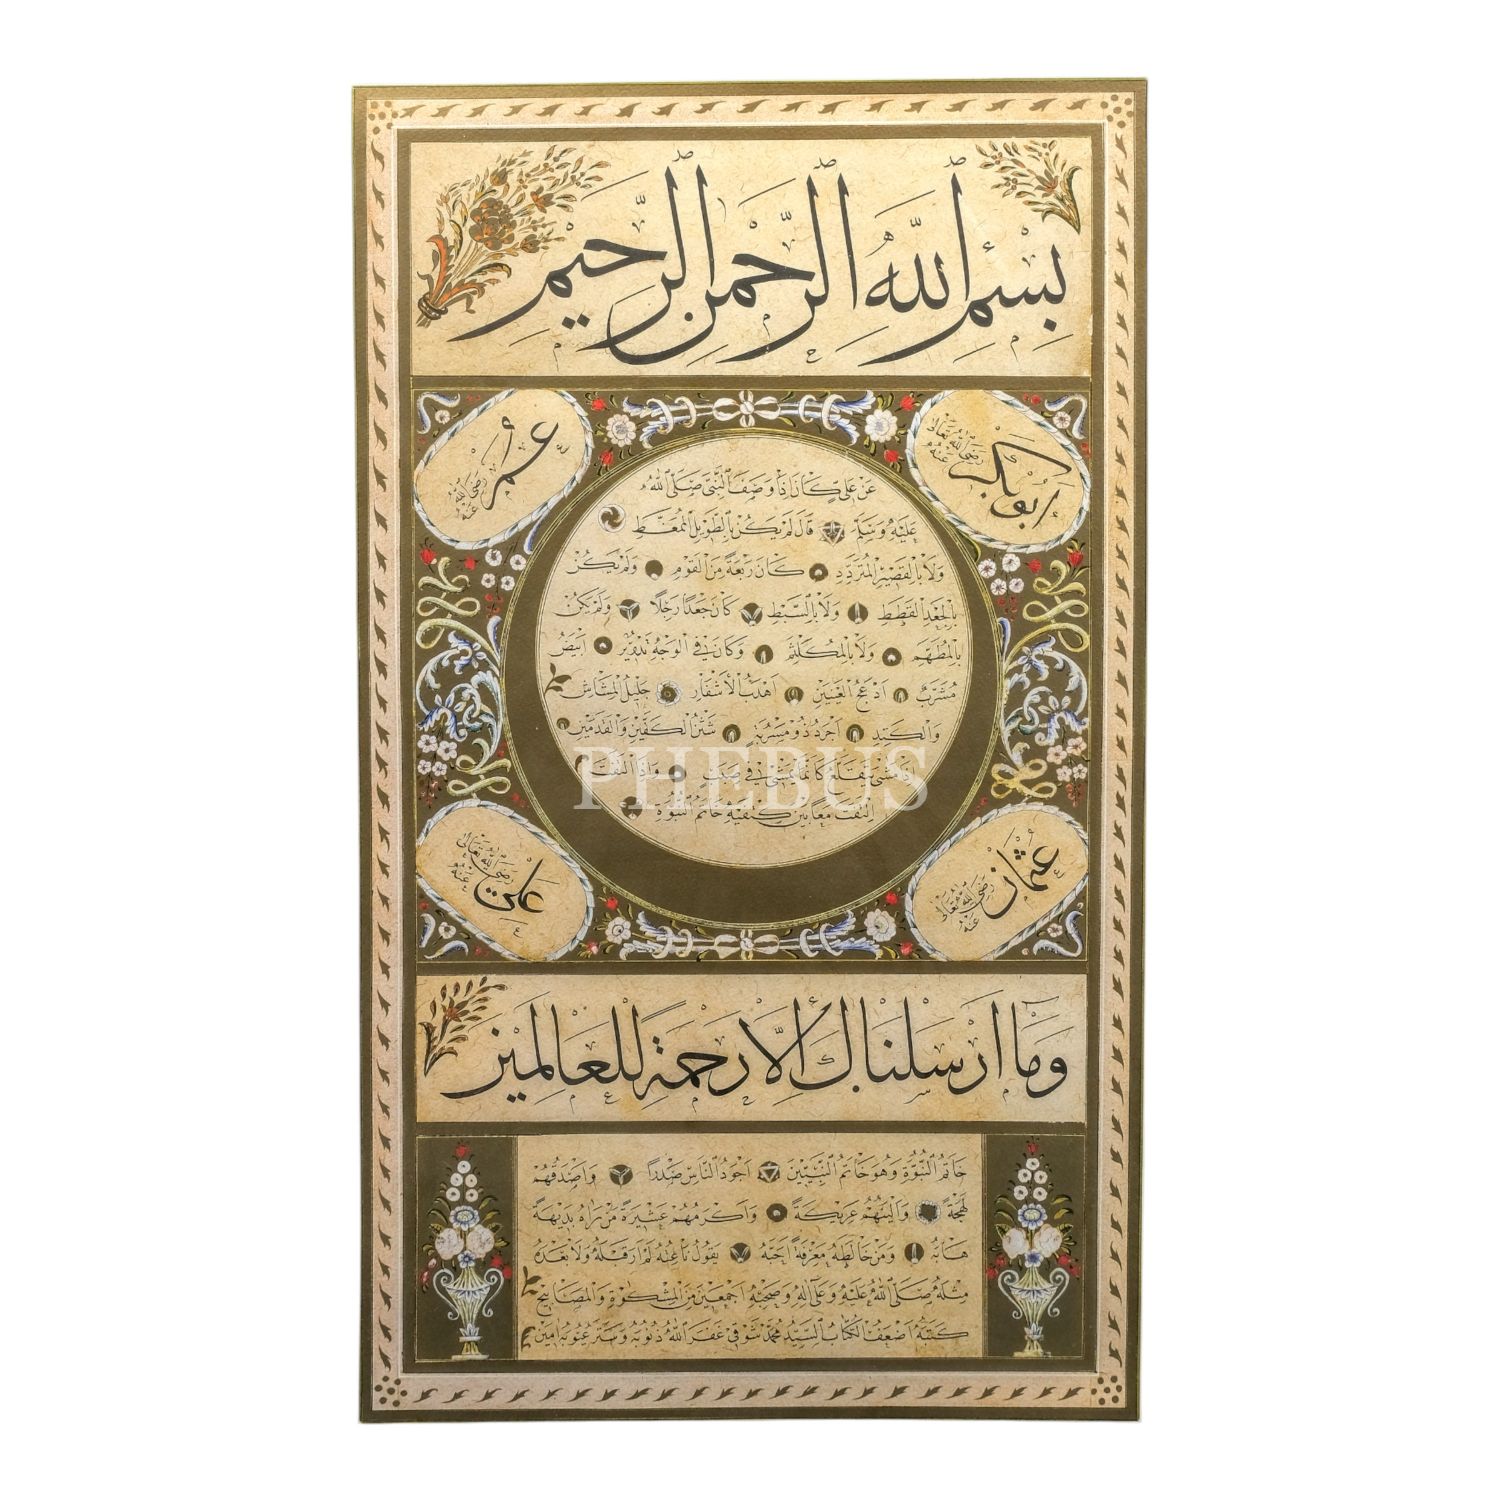 بِسْمِ اللهِ الرَّحْمٰنِ الرَّحِيمِ
ابوبكر رضى الله تعالى عنه
عمر رضى الله عنه
عن على كان اذا وصف النبى صلى الله
عليه وسلم قال لم يكن بالطويل الممغط
ولا بالقصير المتردد كان ربعة من القوم ولم يكن
بالجعد القطط ولا بالسبط كان جعدا رجلا ولم يكن
بالمطهم ولا بالمكلثم وكان فى الوجه تدوير ابيض
مشرب ادعج العينين اهدب الاشفار جليل المشاش
والكتد اجرد ذو مسربة شثن الكفين والقدمين
اذا مشى يتقلع كانما يمشى فى صبب واذا التفت
التفت معا بين كتفيه خاتم النبوة
عثمان رضى الله تعالى عنه
على رضى الله تعالى عنه
وما ارسلناك الا رحمة للعالمين
خاتم النبوة وهو خاتم النبيين اجود الناس صدرا واصدقهم
لهجة والينهم عريكة واكرمهم عشيرة من راه بديهة
هابه ومن خالطه معرفة احبه يقول ناعته لم ار قبله ولا بعده
مثله صلى الله عليه وعلى اله وصحبه اجمعين من المشكوة والمصابيح
كتبه اضعف الكتاب السيد محمد شوقى غفر الله ذنوبه وستر عيوبه امين
PHEBUS